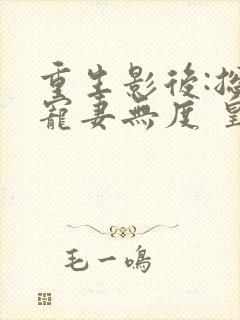 重生影後:
寵妻無度
毛一鳴